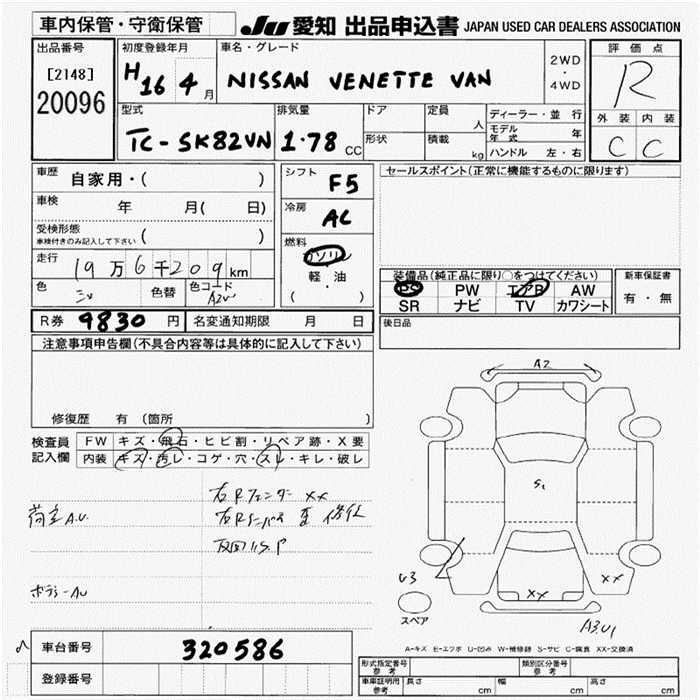 車内保管・守衛保管
JU 愛知 出品申込書 JAPAN USED CAR DEALERS ASSOCIATION
出品番号
[2148]
20096
初度登録年月
H16 4月
車名・グレード
NISSAN VENETTE VAN
2WD
・
4WD
評価点
R
外装 内装
C C
型式
TC-SK82VN
排気量
1.78 CC
ドア
形状
定員
人
積載
kg
ディーラー・並行
モデル年式 年
ハンドル 左・右
車歴
自家用・( )
車検
年 月( 日)
受検形態
車検付きのみ記入して下さい ( )
走行
19万6千209km
色
色替
色コード
A2W
シフト
F5
冷房
AC
燃料
ガソリン
軽・油
( )
セールスポイント(正常に機能するものに限ります)
装備品(純正品に限り○をつけてください)
PS PW エアB AW
SR ナビ TV カワシート
新車保証書
有・無
R券 9830 円 名変通知期限 月 日
後日品
注意事項申告欄(不具合内容等は具体的に記入して下さい)
修復歴 有 (箇所 )
検査員
記入欄
FW キズ・飛石・ヒビ割・リペア跡・X要
内装 キズ・汚レ・コゲ・穴・スレ・キレ・破レ
右Rフェンダー XX
A.U.
ボデーAU
A2
S1
U3
XX
XX
スペア
A3U1
A-キズ E-エクボ U-凹み W-補修跡 S-サビ C-腐食 XX-交換済
車台番号 320586
登録番号
形式指定番号
参考
類別区分番号
参考
車庫証明用
参考
長さ cm 幅 cm 高さ cm